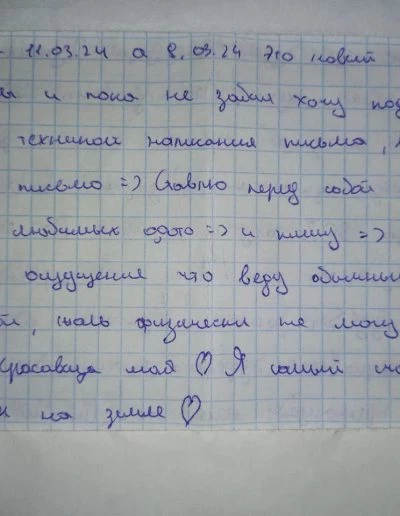 11.03.24 а 8.03.24 это новый
и пока не забыл хочу под
техникой написания письма,
письмо => Ставлю перед собой
любимых фото => и пишу =>
ощущение что веду обычный
, жаль физически не могу
Красавица моя ♡ Я самый сча
на земле ♡